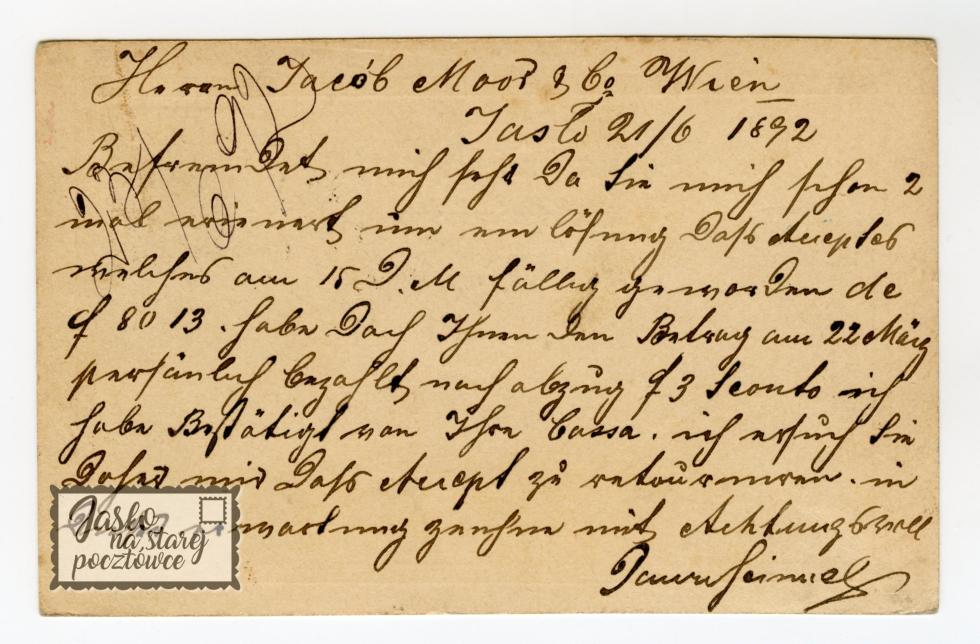 Herrn Jacob Moos & Co Wien
Jasło 21/6 1892
Befremdet mich sehr Da Sie mich schon 2
mal erienert um ein lösung Dass Acceptes
welches am 15 D. M fällig geworden de
f 80 13. habe Doch Ihnen den Betrag am 22 März
persönlich bezahlt nach abzug f 3 Sconto ich
habe Bestätigt von Ihre Cassa. ich ersuch Sie
Daher mir Dass Accept zu retournieren. in
erwartung zeichne mit Achtungsvoll
Jasło
na starej
pocztówce